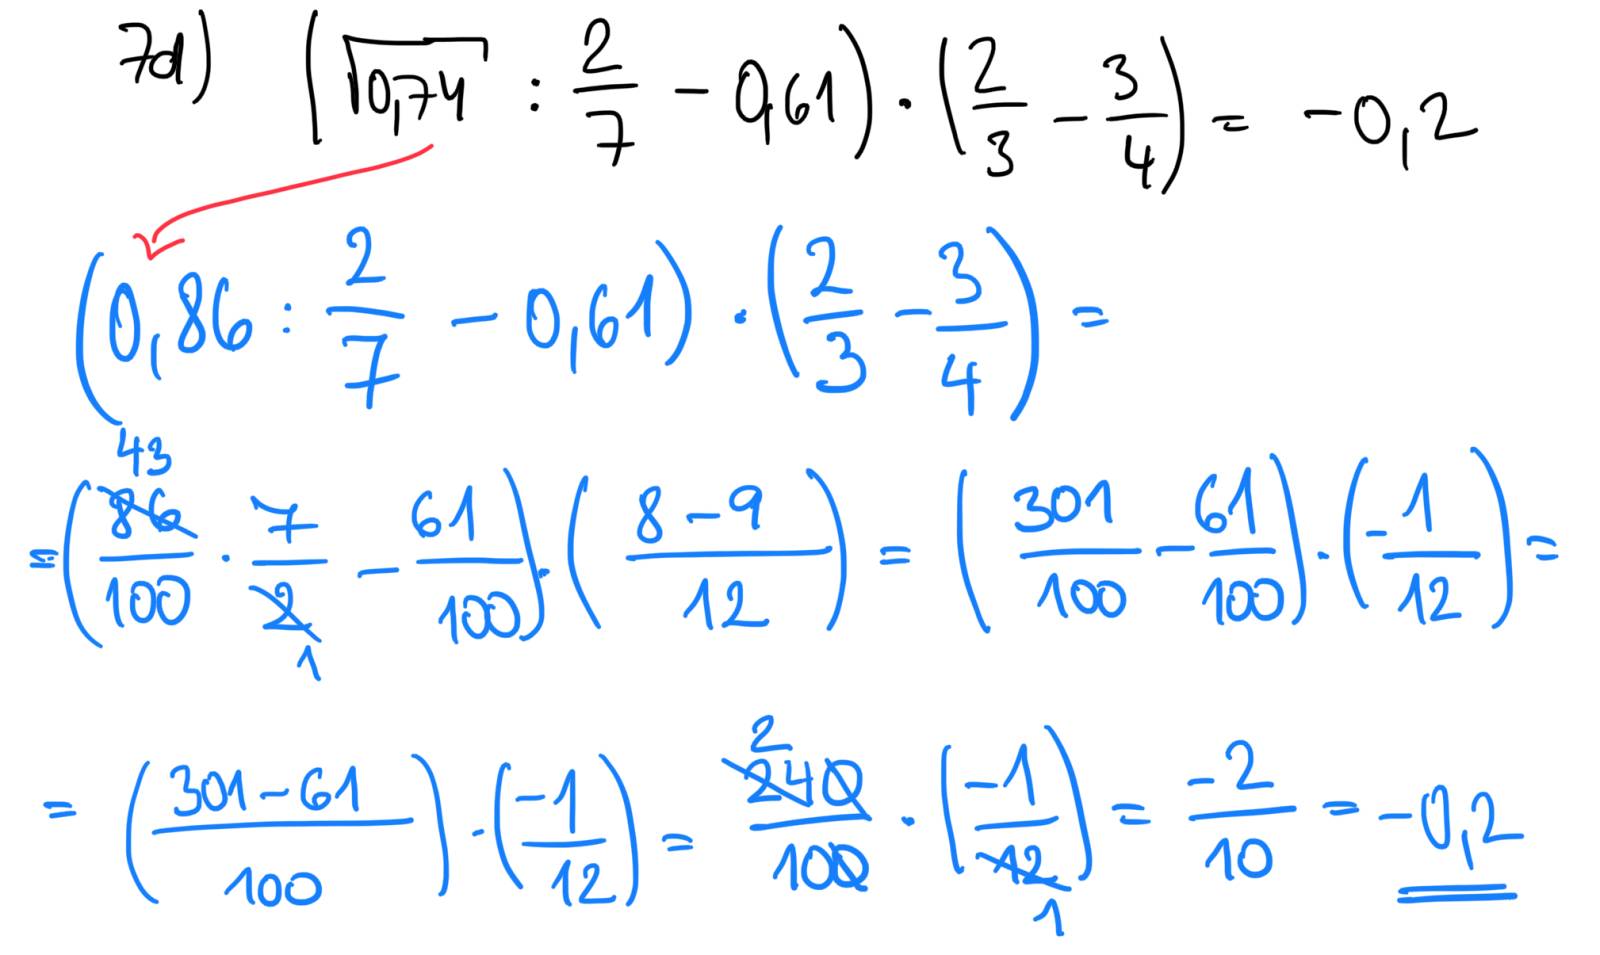 7d) (√0,74 : 2/7 − 0,61) · (2/3 − 3/4) = −0,2
(0,86 : 2/7 − 0,61) · (2/3 − 3/4) =
43
= (86/100 · 7/2 − 61/100) · ((8−9)/12) = (301/100 − 61/100) · (−1/12) =
1
2
= ((301−61)/100) · (−1/12) = 240/100 · (−1/12) = −2/10 = −0,2
1